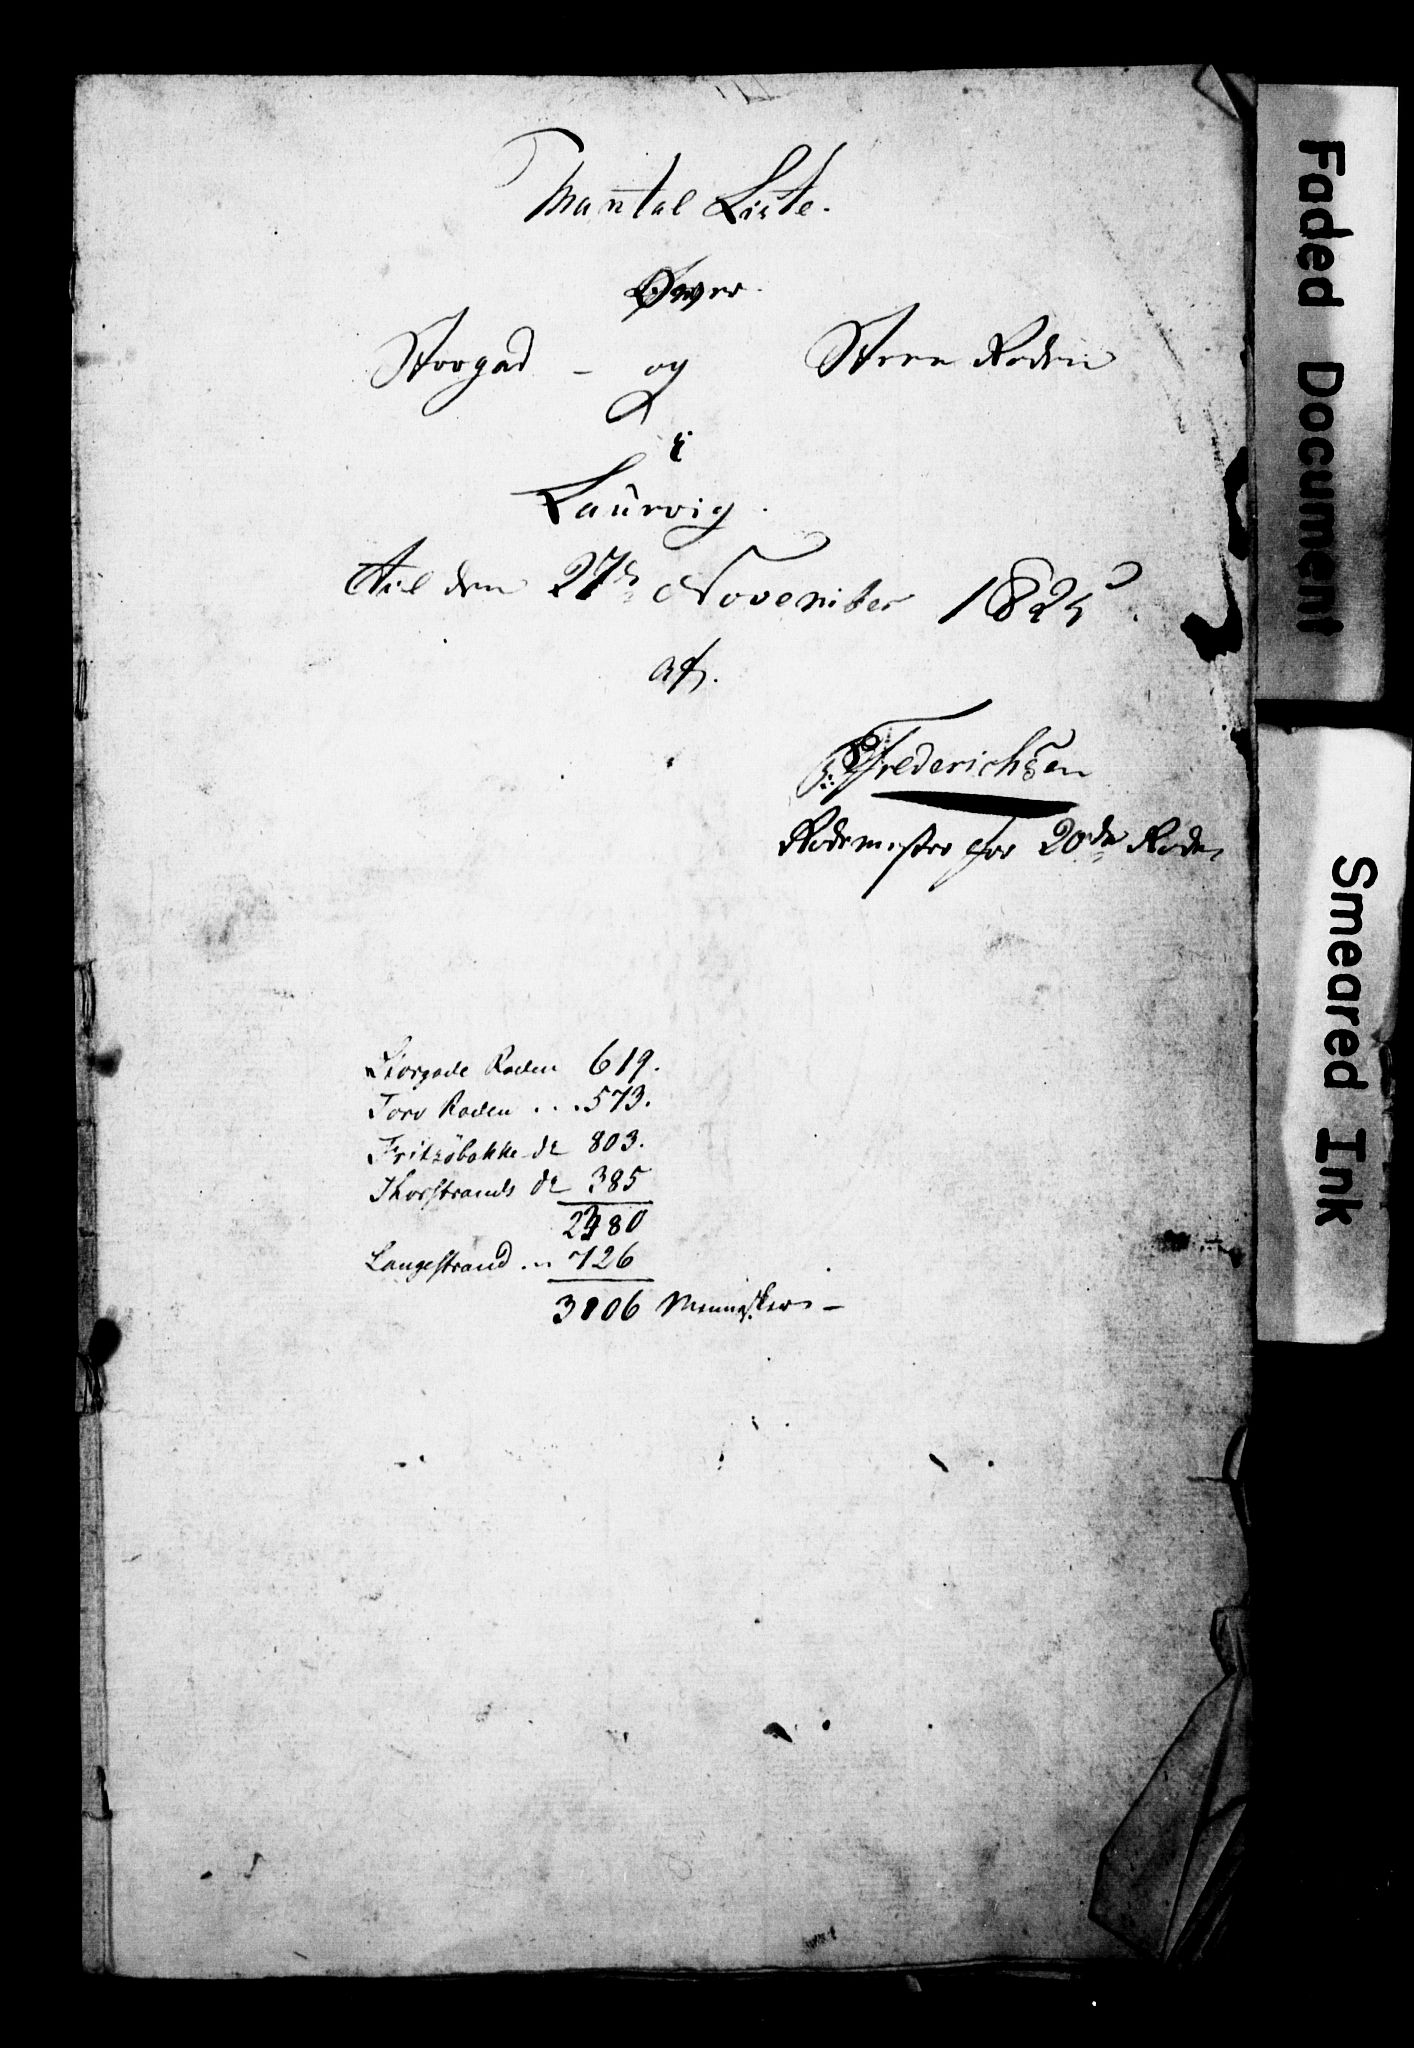 Mantal Liste.
Over
Storgad - og Steen Roden
i
Laurvig.
til den 27de November 1825.
af.
Frederichsen
Rodemester for 20de Rode
Storgade Roden 619.
Torv Roden ... 573.
Fritzöbakke do 803.
Thorstrands do 385
2380
Langestrand ... 726
3106 Mennesker -
Faded Document
Smeared Ink